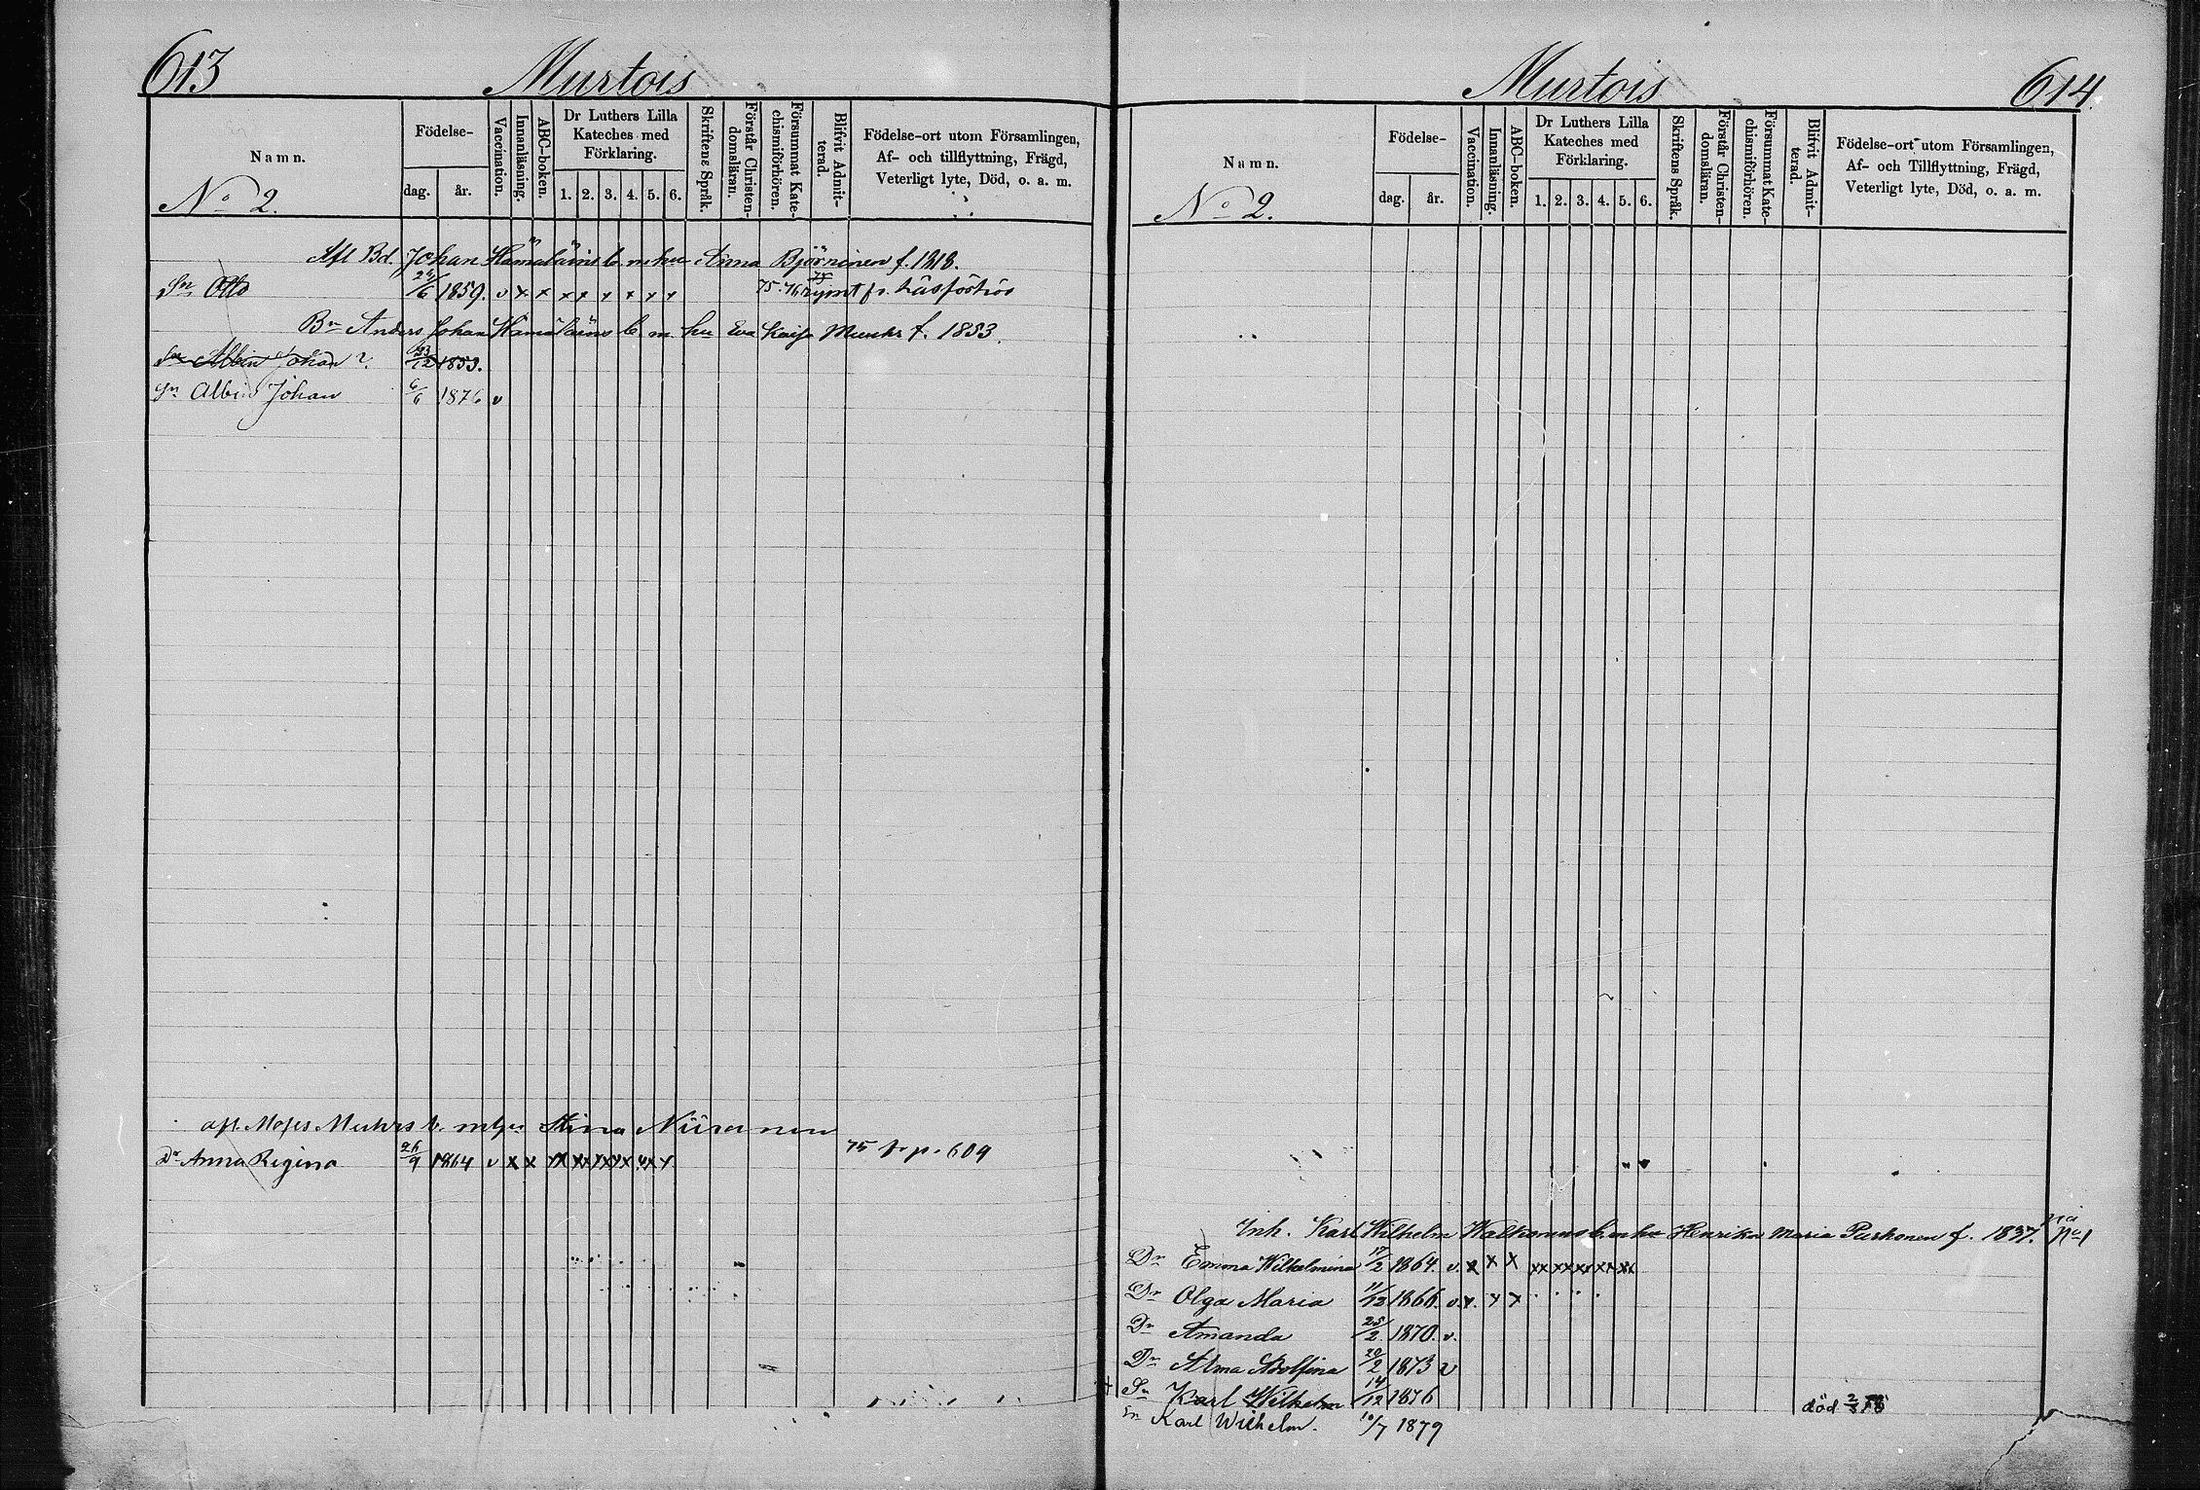 613
Murtois
Namn.
Födelse-
dag.
år.
Vaccination.
Innanläsning.
ABC-boken.
Dr Luthers Lilla
Kateches med
Förklaring.
1. 2. 3. 4. 5. 6.
Skriftens Språk.
Förstår Christen-
domsläran.
Försummat Kate-
chismiförhören.
Blifvit Admit-
terad.
Födelse-ort utom Församlingen,
Af- och tillflyttning, Frägd,
Veterligt lyte, Död, o. a. m.
No 2.
Afl Bd. Johan Hämäläins b. m hu Anna Björninen f. 1818.
Sn Otto 1859. v x x x x x x x x 75. 76
Bn Anders Johan Hämäläins b. m. hu Eva Kaisa Muuhr f. 1853.
Sn Albin Johan 23/12 1853.
Sn Albin Johan 6/6 1876 v
afl. Moses Muhrs b. m hu Stina Niiranen
Dr Anna Regina 26/9 1864 v x x 75 fr. p. 609
Murtois
614.
Namn.
Födelse-
dag.
år.
Vaccination.
Innanläsning.
ABC-boken.
Dr Luthers Lilla
Kateches med
Förklaring.
1. 2. 3. 4. 5. 6.
Skriftens Språk.
Förstår Christen-
domsläran.
Försummat Kate-
chismiförhören.
Blifvit Admit-
terad.
Födelse-ort utom Församlingen,
Af- och Tillflyttning, Frägd,
Veterligt lyte, Död, o. a. m.
No 2.
Inh. Karl Wilhelm Walkonens b. m hu Henrika Maria Purhonen f. 1837. No 1
Dr Emma Wilhelmina 17/2 1864. v. x x x xx xx xx xx xx
Dr Olga Maria 11/12 1866. v. x. x x
Dr Amanda 25/2 1870. v.
Dr Alma Adolfina 20/2 1873 v
+ Sn Karl Wilhelm 14/12 1876 död 2/3 78
Sn Karl Wilhelm. 10/7 1879